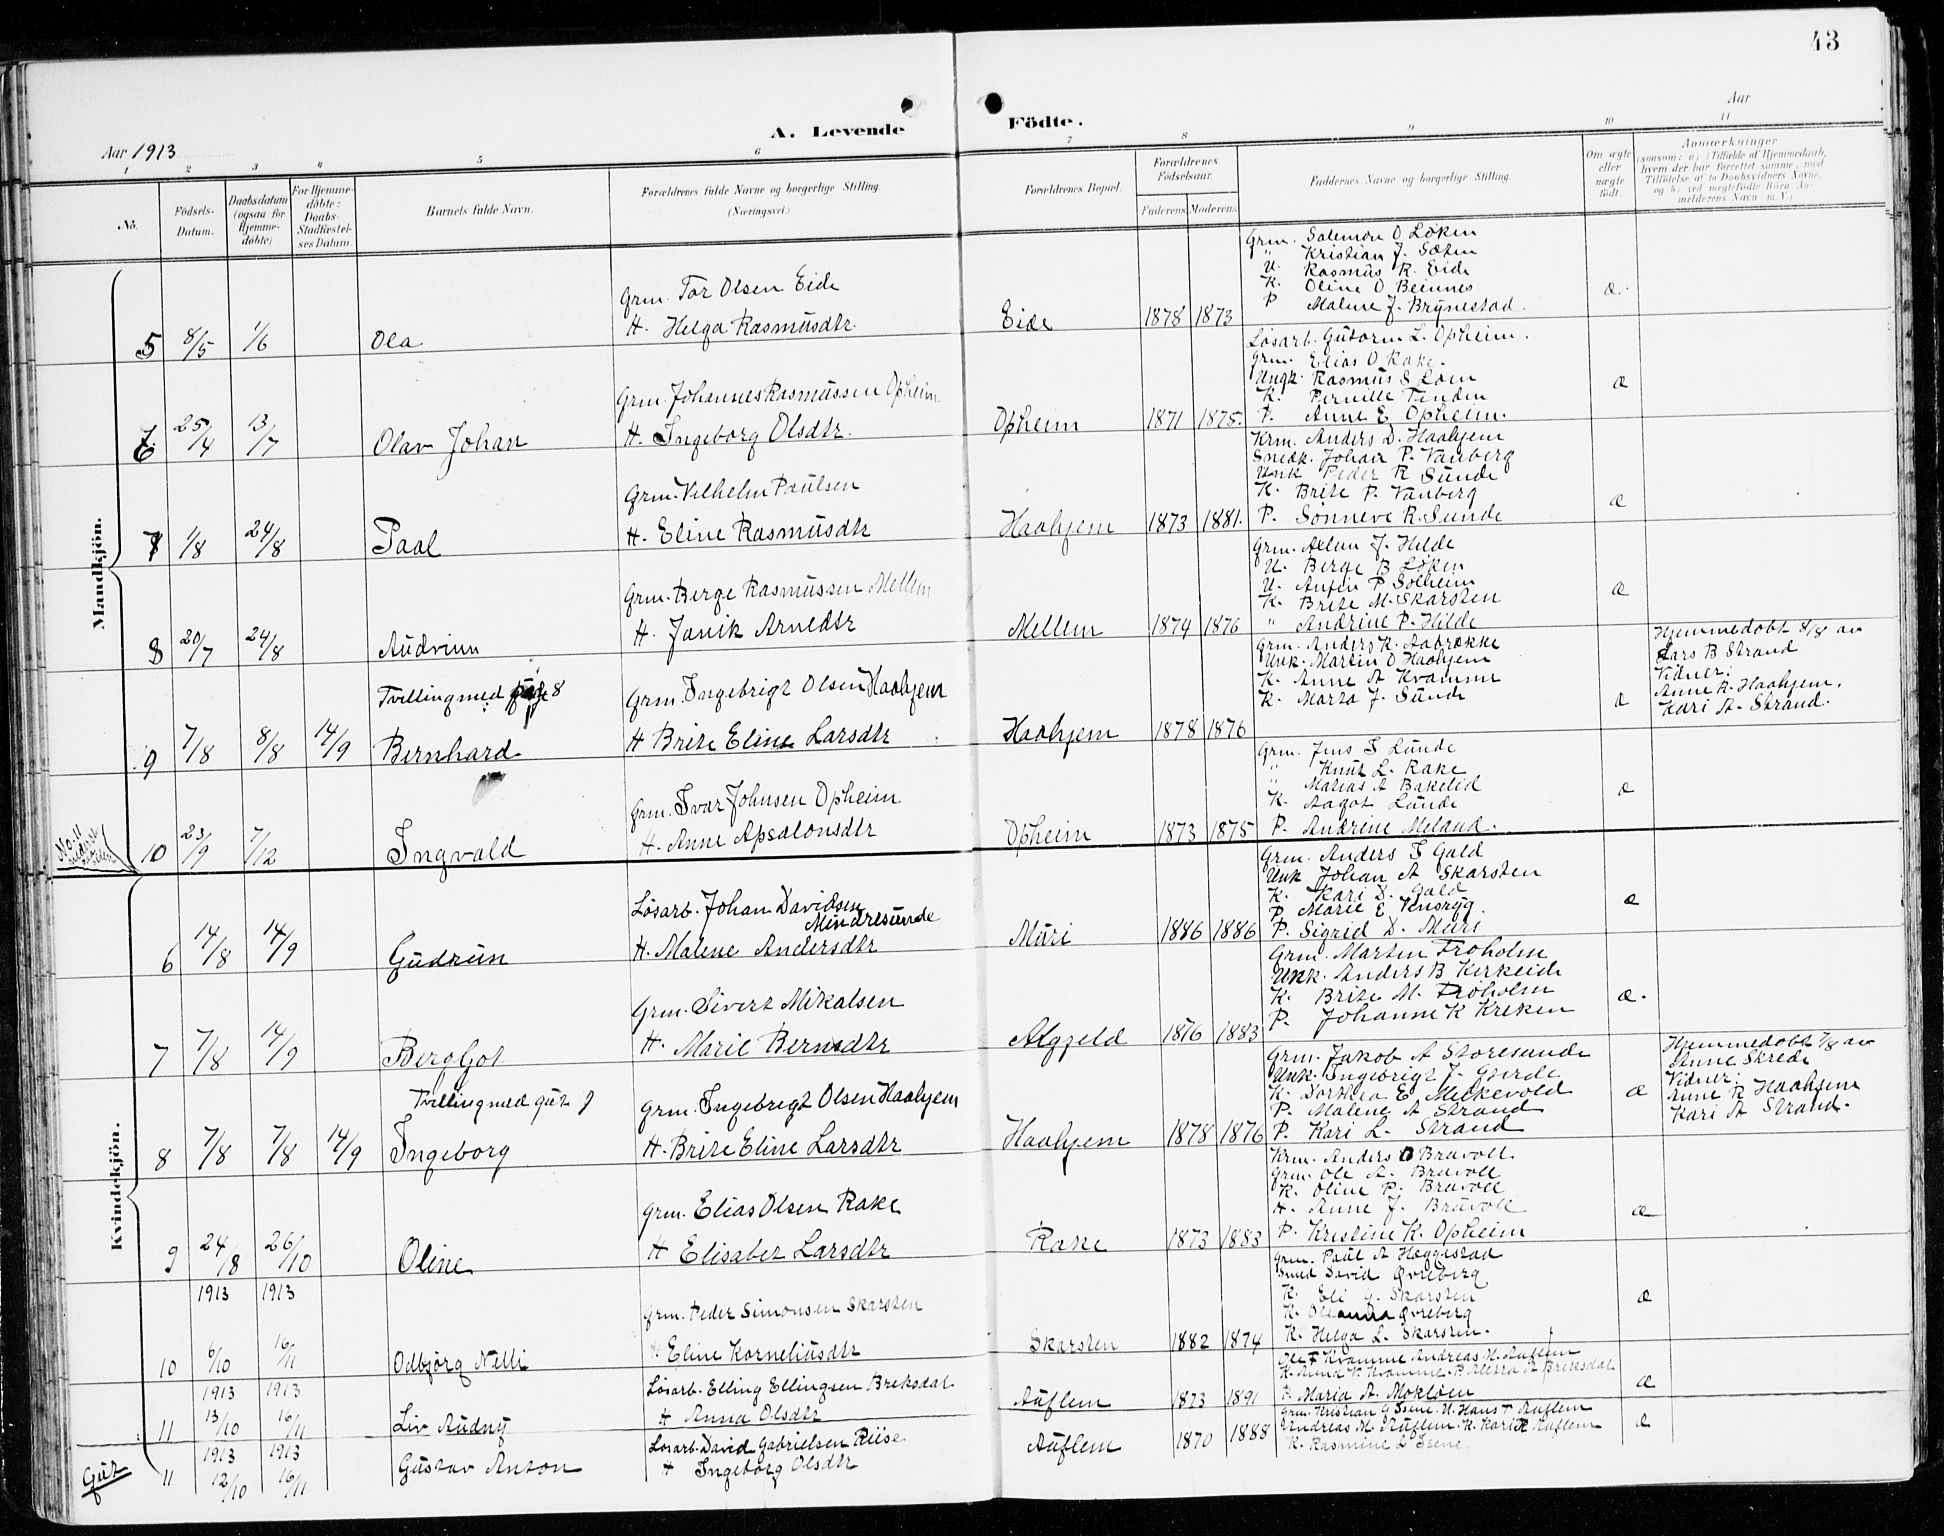 43
A. Levende Födte.
Aar 1913
Aar
1 2 3 4 5 6 7 8 9 10 11
No.
Födsels-Datum.
Daabsdatum (ogsaa for Hjemme-döbte)
For Hjemme-döbte: Daabs-Stadfæstel-ses Datum.
Barnets fulde Navn.
Forældrenes fulde Navne og borgerlige Stilling. (Næringsvei.)
Forældrenes Bopæl.
Forældrenes Födselsaar.
Faderens. Moderens.
Faddernes Navne og borgerlige Stilling.
Om ægte eller uægte födt.
Anmærkninger
(saasom: a) i Tilfælde af Hjemmedaab, hvem der har forrettet samme, med Tilföielse af to Daabsvidners Navne, og b) ved uægtefödte Börn An-melderens Navn m.V.)
Mandkjön.
5 8/5 1/6 Ola
Grm. Tor Olsen Eide
H. Helga Rasmusdtr.
Eide 1878 1873
Grm. Salemon O Løken
" Kristian J. Sæten
U. Rasmus R. Eide
K. Oline O Beinnes
P Malene J. Brynestad.
æ.
6 25/4 13/7 Olav Johan
Grm. Johannes Rasmussen Opheim
H. Ingeborg Olsdtr.
Opheim 1871 1875.
Løsarb. Gutorm L. Opheim.
Grm. Elias O Rake.
Ungk. Rasmus S Loen
K. Pernille Tenden
P. Anne E Opheim.
æ
7 1/8 24/8 Paal
Grm. Vilhelm Paulsen
H. Eline Rasmusdtr
Haahjem 1873 1881.
Krm. Anders D. Haahjem
Snedk. Johan P. Vanberg
Unk Peder R Sunde
K. Brite P. Vanberg
P. Sønneve R. Sunde
æ
8 20/7 24/8 Audvinn
Grm. Berge Rasmussen Mellem
H. Janik Arnedtr
Mellem 1874 1876
Grm. J. Hilde
U. Berge B Løken
U. Anten P Solheim
K. Brite M. Skarsten
" Andrine P. Hilde
æ
Tvilling med pige 8
9 7/8 8/8 14/9 Bernhard
Grm. Ingebrigt Olsen Haahjem
H Brite Eline Larsdtr
Haahjem 1878 1876
Grm. Anders K. Aabrekke
Unk. Martin O Haahjem
K. Anne A Kvamme
K. Marta J. Sunde
æ
Hjemmedøbt 8/8 av
Lars B Strand
Vidner:
Anne R. Haahjem.
Kari A. Strand.
10 23/9 7/12 Ingvald
Grm. Ivar Johnsen Opheim
H. Anne Apsalonsdtr
Opheim 1873 1875
Grm. Jens I Lunde
" Knut L. Rake
" Matias A Bakelid
K. Aagot Lunde
P. Andrine Meland.
æ
No. 11 nederst
Kvindekjön.
6 14/8 14/9 Gudrun
Løsarb. Johan Davidsen Mindresunde
H. Malene Andersdtr
Muri 1886 1886
Grm. Anders I Gald
Unk Johan A Skarsten
K. Kari D. Gald
P. Marie E
P. Sigrid D. Muri
æ
7 7/8 14/9 Bergljot
Grm. Sivert Mikalsen
H. Marie Berntsdtr
Algjeld 1876 1883
Grm. Marten Froholm
Unk. Anders B Kirkeide
K. Brite M. Froholm
P. Johanne K Kreken
æ.
Tvilling med gut 9
8 7/8 7/8 14/9 Ingeborg
Grm. Ingebrigt Olsen Haahjem
H. Brite Eline Larsdtr
Haahjem 1878 1876
Grm. Jakob A Storesunde
Unk. Ingebrigt J. Gjerde
K. Dorthea E Melkevold
P. Malene A Strand
P. Kari L. Strand
æ
Hjemmedøbt 7/8 av
Anne Skrede
Vidner:
Anne R Haahjem
Kari A Strand.
9 24/8 26/10 Oline
Grm. Elias Olsen Rake
H Elisabet Larsdtr
Rake 1873 1883
Krm. Anders O Bruvoll.
Grm. Ole A. Bruvoll
K. Oline P. Bruvoll
H. Anne J. Bruvoll
P. Kristine K. Opheim
æ
1913 1913
10 6/10 16/11 Odbjørg Nelli
Grm. Peder Simonsen Skarsten
H Eline Korneliusdtr
Skarsten 1882 1874
Grm. Paul A Heggestad
Smed David Øvreberg
K. Eli G. Skarsten
K. Oleanna Øvreberg
K. Helga L. Skarsten.
æ
1913 1913
11 13/10 16/11 Liv Audny
Løsarb. Elling Ellingsen Breksdal
H Anna Olsdtr
Auflem 1873 1891
Ole T Kvamme Andreas M. Auflem
K. Anna K. Kvamme. P. A Breksdal
P. Maria A. Mokleen
æ
1913 1913
Gut 11 12/10 16/11 Gustav Anton
Løsarb. David Gabrielsen Riise
H Ingeborg Olsdtr
Auflem 1870 1888
Grm. Kristian G Isene. U. Hans T Auflem
Andreas M. Auflem. K. Kari R Auflem
K. Rasmine L Isene
æ